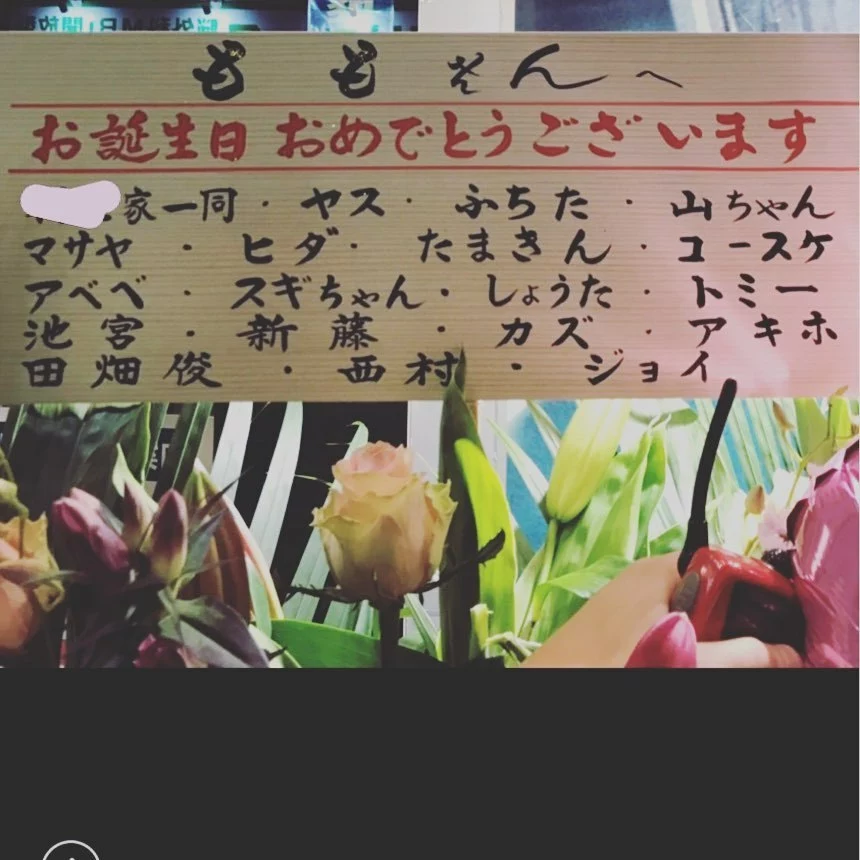 ももさんへ
お誕生日 おめでとうございます
家一同・ヤス・ふちた・山ちゃん
マサヤ・ヒダ・たまきん・コースケ
アベベ・スギちゃん・しょうた・トミー
池宮・新藤・カズ・アキホ
田畑俊・西村・ジョイ